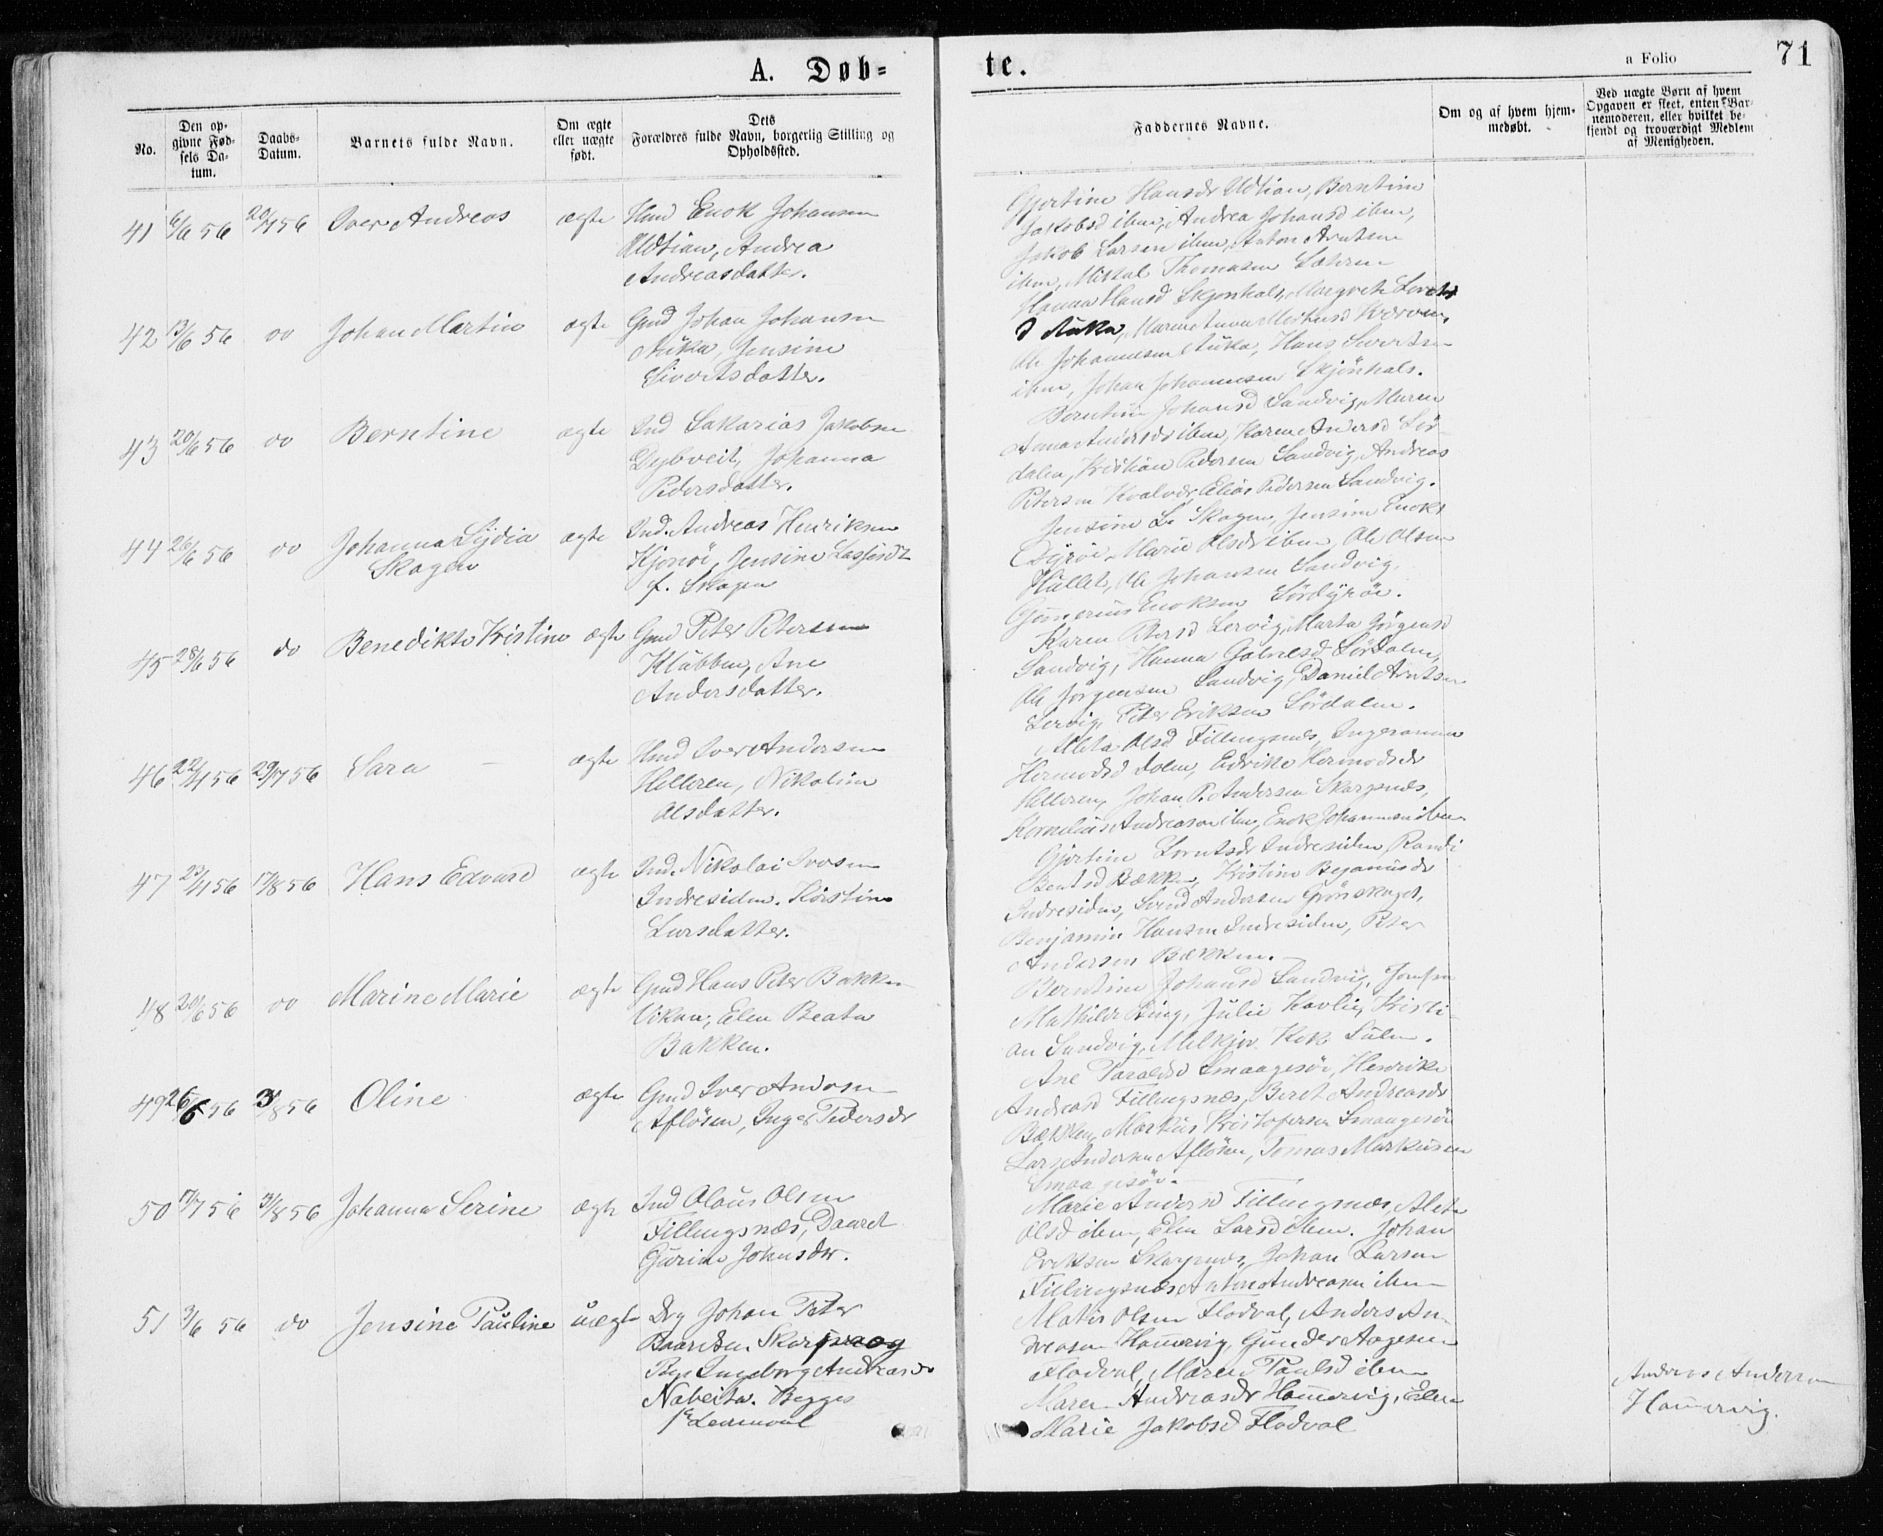 A. Døb=
te.
a Folio
71
No.
Den op-
givne Fød-
sels Da-
tum.
Daabs-
Datum.
Barnets fulde Navn.
Om ægte
eller uægte
født.
Dets
Forældres fulde Navn, borgerlig Stilling og
Opholdssted.
Faddernes Navne.
Om og af hvem hjem-
medøbt.
Ved uægte Børn af hvem
Opgaven er skeet, enten Bar-
nemoderen, eller hvilket be-
kjendt og troværdigt Medlem
af Menigheden.
41 6/6 56 20/7 56 Iver Andreas ægte Hmd Enok Johansen
Udtian, Andrea
Andreasdatter.
Gjertine Hansdr Udtian, Berntine
Jakobsd ibm, Andrea Johansd ibm,
Jakob Larsen ibm, Anton Arntsen
ibm, Mikal Thomasen
42 13/6 56 do Johan Martin ægte Gmd Johan Johansen
Auka, Jensine
Sivertsdatter.
Hanna Hansd Skjønhals, Margrete
d Auka,
Ole Johannesen Auka, Hans Sivertsen
ibm, Johan Johannesen Skjønhals.
43 20/6 56 do Berntine ægte Ind Sakarias Jakobsen
Dybveit, Johanna
Pedersdatter.
Berntine Johansd Sandvig, Maren
Anna Andersdr ibm, Karen Andersd Sør-
dalen, Kristian Pedersen Sandvig, Andreas
Petersen Elias Pedersen Sandvig.
44 26/6 56 do Johanna Lydia ægte Ind. Andreas Henriksen
Skagen
Jensine
f. Skagen
Jensine L. Skagen, Jensine Enoks
Dyrøi, Marie Olsdr ibm, Ole Olsen
Hallet, Ole Johansen Sandvig,
Gunerius Enoksen Sørdyrøi.
45 28/6 56 do Benedikte Kristine ægte Gmd Peter Petersen
Klubben, Ane
Andersdatter.
Karen Petersd Lervig, Marta Jørgensd
Sandvig, Hanna Sørdalen,
Ole Jørgensen Sandvig, Daniel Arntsen
Lervig, Peter Eriksen Sørdalen.
46 22/4 56 29/7 56 Sara ægte Hmd Iver Andersen
Helleren, Nikoline
Olsdatter.
Aleta Olsd Fillingsnes, Ingeranna
Hermodsd Hermodsdr
Helleren, Johan P. Andersen Skarpnes,
Kornelius Andreasen ibm, Enok Johannesen ibm
47 23/4 56 17/8 56 Hans Edvard ægte Ind. Nikolai Iversen
Indresiden. Kirstine
Larsdatter.
Gjertine Indresiden, Randi
Berntsd Bækken, Kristine Benjaminsdr
Indresiden, Svend Andersen Grønskaget,
Benjamin Hansen Indresiden, Peter
Andersen Bækken.
48 20/6 56 do Marine Marie ægte Gmd Hans Peter Bakken
Vikan, Elen Beata
Bakken.
Berntine Johansd Sandvig,
Mathilde Bing, Julie Havlig, Kristi-
an Sandvig, Melkjor
49 26/6 56 3/8 56 Oline ægte Gmd Iver Andersen
Afløsen, Inger Pedersdr
Ane Taraldsd Smaagesøi, Henrika
Andreasd Fillingsnæs, Beret Andreasdr
Bækken, Markus Kristofersen Smaagesøi
Lars Andersen Afløsen, Tomas Markusen
Smaagesøi.
50 17/7 56 3/8 56 Johanna Serine ægte Ind Olaus Olsen
Fillingsnæs, Daaret
Gurine Johnsdr.
Marie Andersd Fillingsnæs, Aleta
Olsd ibm, Elen Larsd ibm. Johan
Eriksen Skarpnes, Johan Larsen
Fillingsnæs Andreasen ibm
51 3/6 56 do Jensine Pauline uægte Drg Johan Peter
Baardsen og
Pige Ingeborg Andreasdr
Nabeita. Begges
1ste Leiermaal
Mathis Olsen Flodval, Anders An-
dreasen Hamervig, Gunder Aagesen
Flodval, Maren Paulsd ibm
Maren Andreasdr Hamervig, Elen
Marie Jakobsd Flodval
Andreas Andersen
Hamervig.